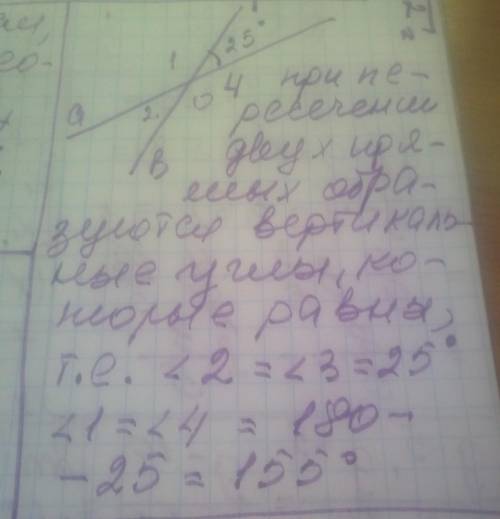 25°
1
2
O
4
a
B
при пе-
ресечении
двух пря-
мых обра-
зуются вертикаль-
ные углы, ко-
торые равны,
т.е. <2 = <3 = 25°
<1 = <4 = 180 -
- 25 = 155°